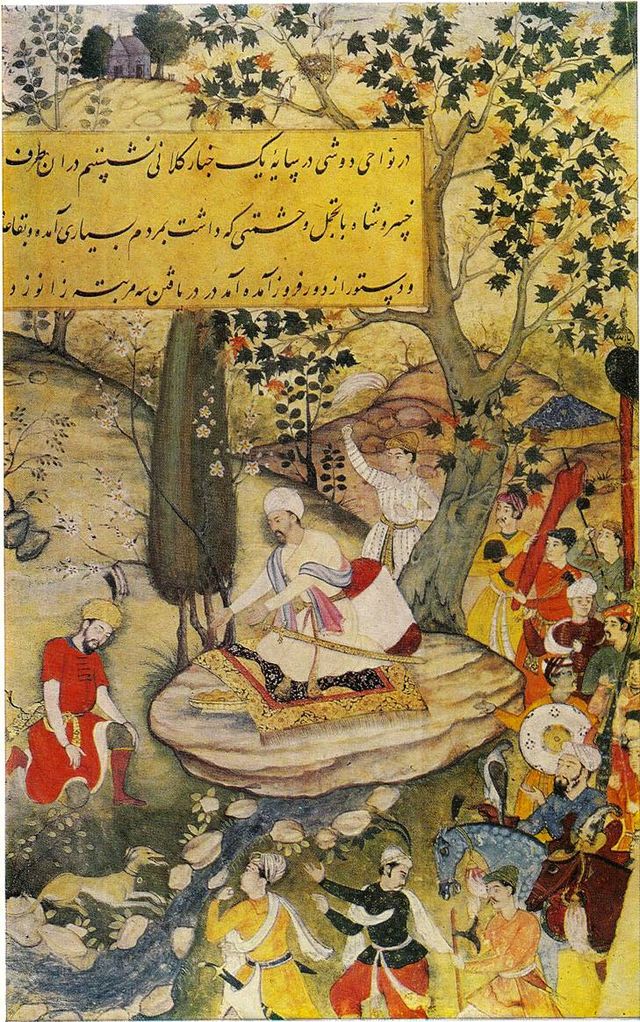 در نواحی دوشی در پایهٔ یک چنار کلانی نشستیم در ان طرف
خسرو شاه با تجمل و حشمتی که داشت بمردم بسیاری آمده و
و دستور از دور فرود آمده آمد در دریافتن سه مرتبه زانو زد